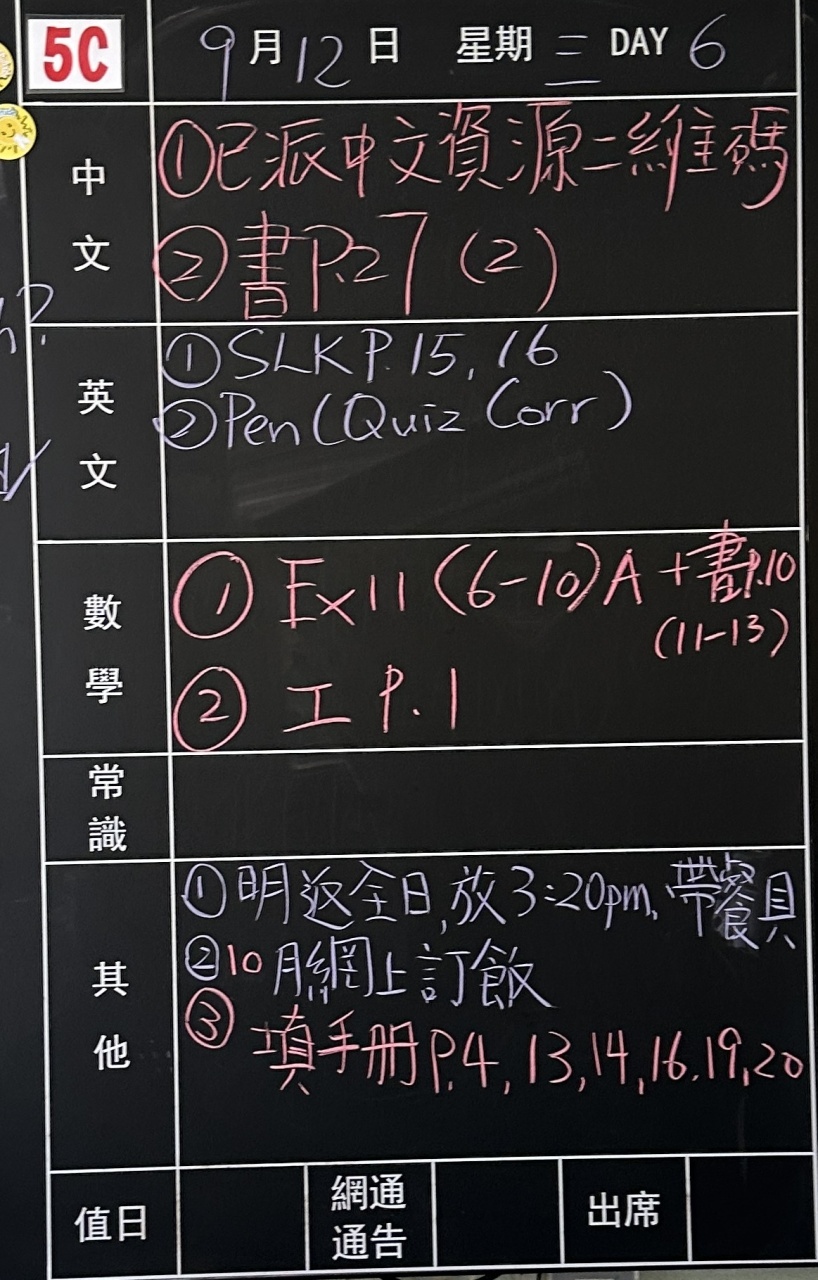 5C 9月12日 星期三 DAY 6
中文
①已派中文資源二維碼
②書P.27 (2)
英文
①SLK P.15, 16
②Pen (Quiz Corr)
數學
① Ex11 (6-10)A + 書P.10
(11-13)
② 工 P.1
常識
其他
①明返全日,放3:20pm,帶餐具
②10月網上訂飯
③填手册P.4, 13, 14, 16, 19, 20
值日 網通通告 出席